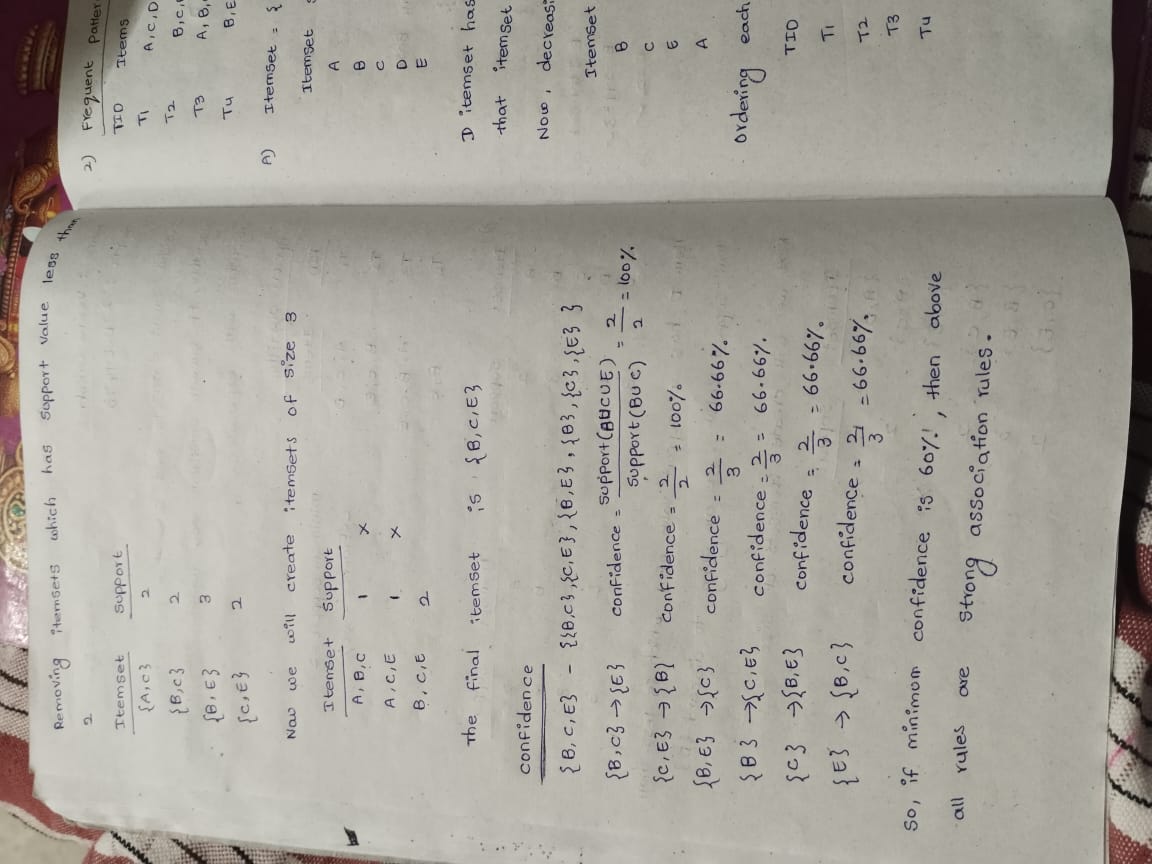 Removing itemsets which has support value less than
2
Itemset support
{A,C} 2
{B,C} 2
{B,E} 3
{C,E} 2
Now we will create itemsets of size 3
Itemset Support
A,B,C 1 x
A,C,E 1 x
B,C,E 2
The final itemset is {B,C,E}
confidence
{B,C,E} - {{B,C},{C,E},{B,E},{B},{C},{E}}
{B,C}→{E} confidence = support(BUCUE) / support(BUC) = 2/2 = 100%
{C,E}→{B} confidence = 2/2 = 100%
{B,E}→{C} confidence = 2/3 = 66.66%
{B}→{C,E} confidence = 2/3 = 66.66%.
{C}→{B,E} confidence = 2/3 = 66.66%.
{E}→{B,C} confidence = 2/3 = 66.66%.
So, if minimum confidence is 60%, then above
all rules are strong association rules.
2) Frequent Patter
TID Items
T1 A,C,D
T2 B,C,
T3 A,B,
T4 B,E
A) Itemset = {
Itemset
A
B
C
D
E
D itemset has
that itemset
Now, decreasi
Itemset
B
C
E
A
Ordering each
TID
T1
T2
T3
T4